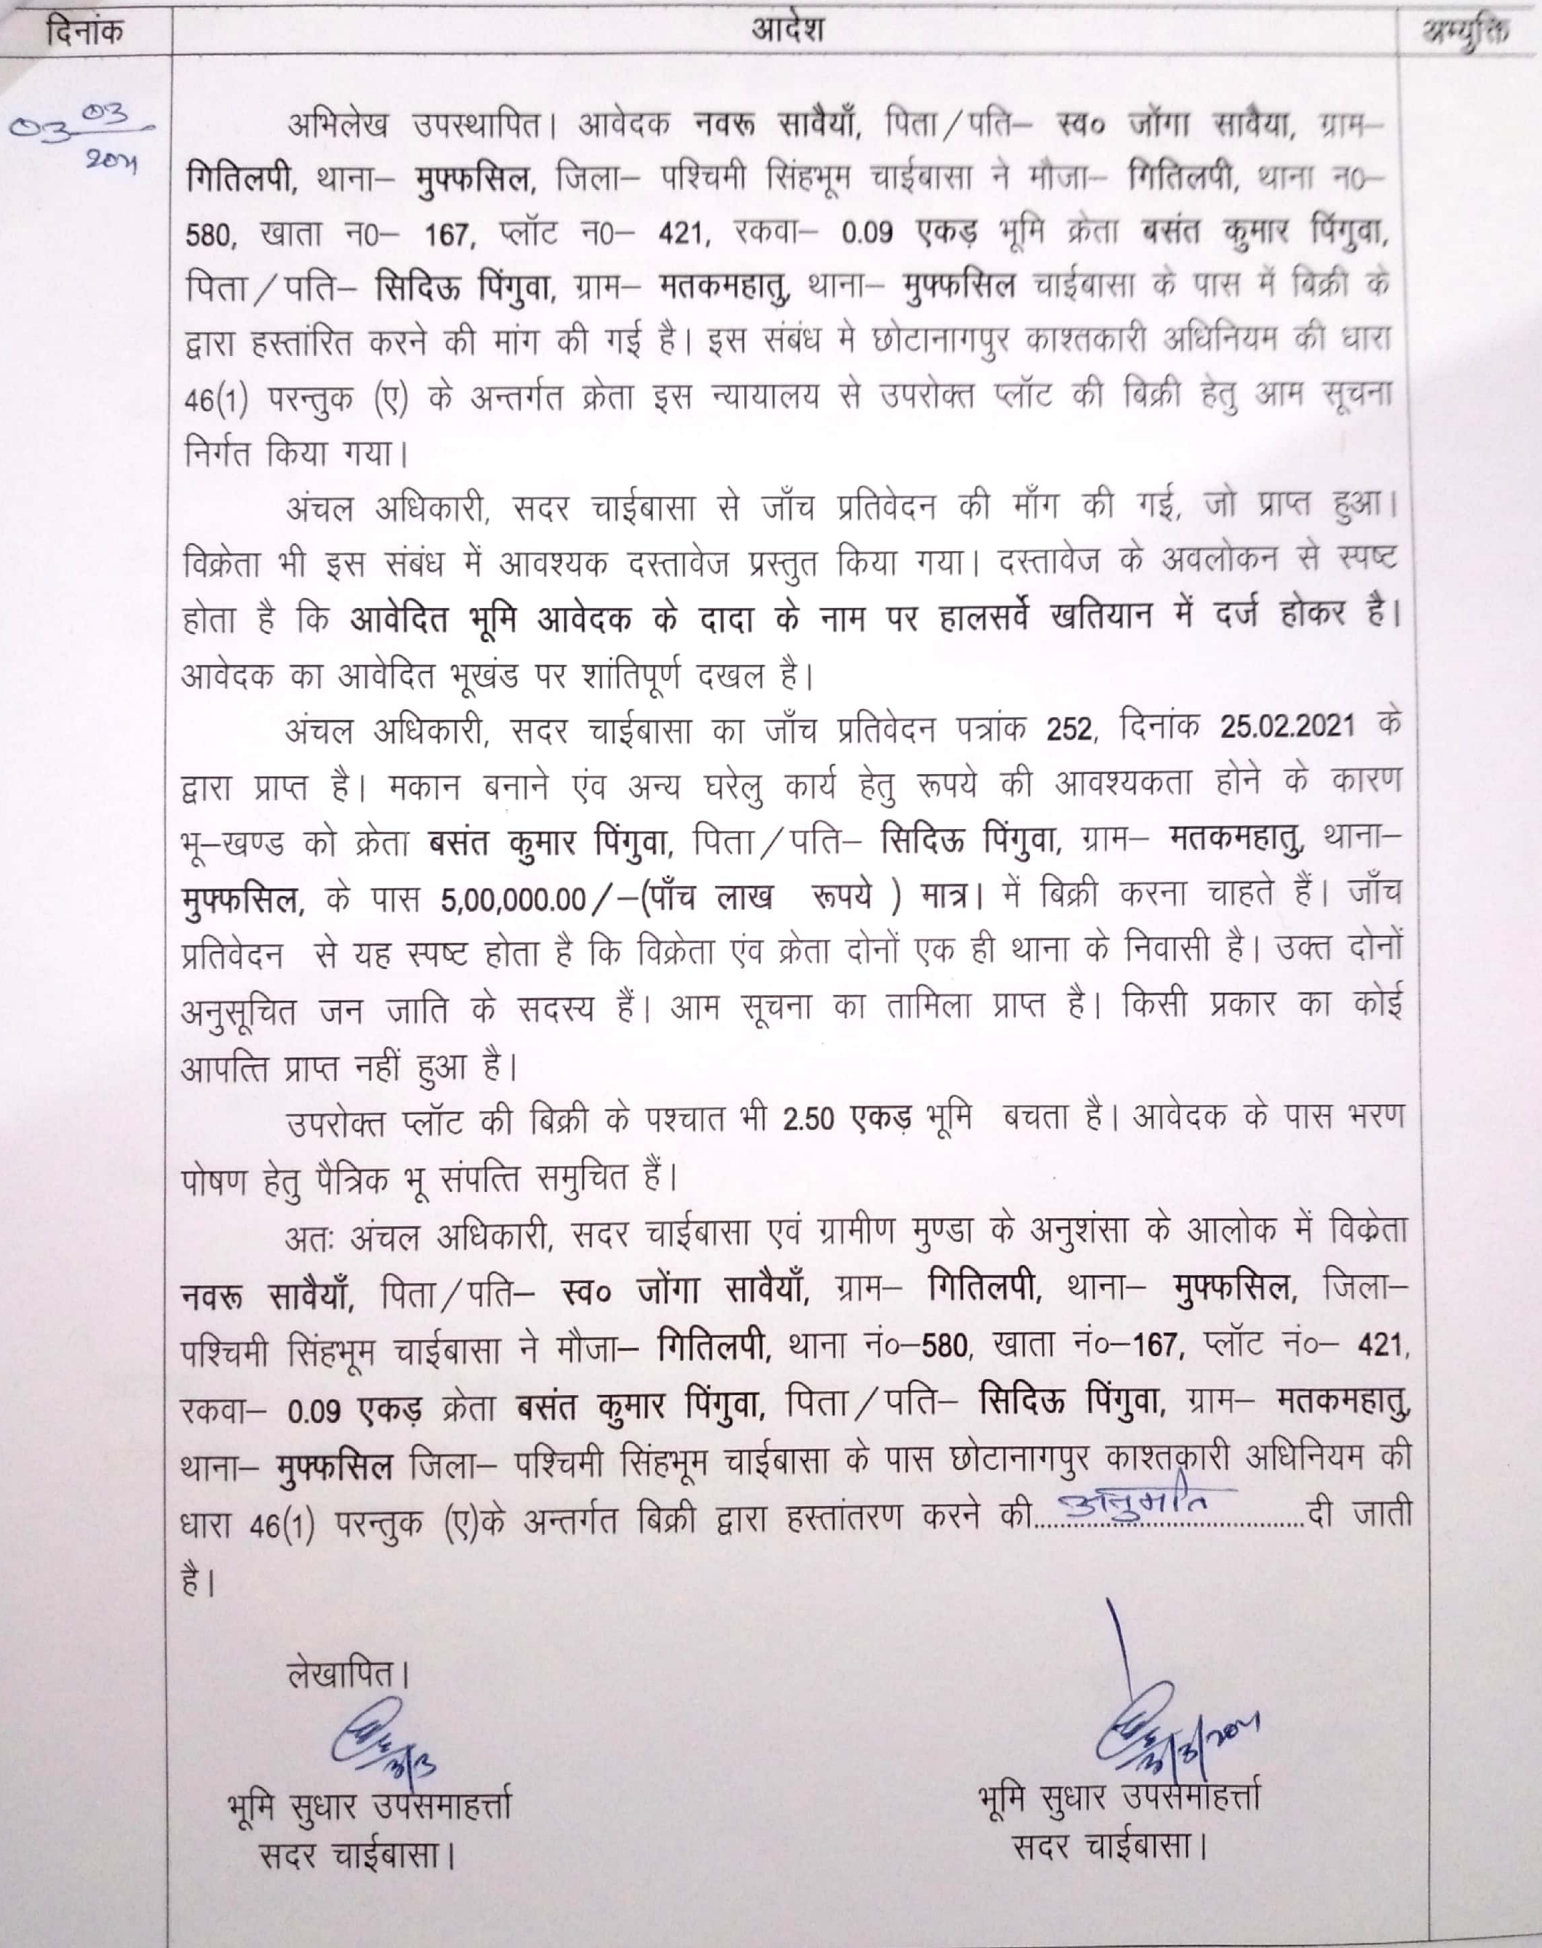 दिनांक आदेश अभ्युक्ति
03 03
2021
अभिलेख उपस्थापित। आवेदक नवरू सावैयाँ, पिता/पति– स्व० जोंगा सावैया, ग्राम–
गितिलपी, थाना– मुफ्फसिल, जिला– पश्चिमी सिंहभूम चाईबासा ने मौजा– गितिलपी, थाना न0–
580, खाता न0– 167, प्लॉट न0– 421, रकवा– 0.09 एकड़ भूमि क्रेता बसंत कुमार पिंगुवा,
पिता/पति– सिदिऊ पिंगुवा, ग्राम– मतकमहातु, थाना– मुफ्फसिल चाईबासा के पास में बिक्री के
द्वारा हस्तांरित करने की मांग की गई है। इस संबंध मे छोटानागपुर काश्तकारी अधिनियम की धारा
46(1) परन्तुक (ए) के अन्तर्गत क्रेता इस न्यायालय से उपरोक्त प्लॉट की बिक्री हेतु आम सूचना
निर्गत किया गया।
अंचल अधिकारी, सदर चाईबासा से जाँच प्रतिवेदन की माँग की गई, जो प्राप्त हुआ।
विक्रेता भी इस संबंध में आवश्यक दस्तावेज प्रस्तुत किया गया। दस्तावेज के अवलोकन से स्पष्ट
होता है कि आवेदित भूमि आवेदक के दादा के नाम पर हालसर्वे खतियान में दर्ज होकर है।
आवेदक का आवेदित भूखंड पर शांतिपूर्ण दखल है।
अंचल अधिकारी, सदर चाईबासा का जाँच प्रतिवेदन पत्रांक 252, दिनांक 25.02.2021 के
द्वारा प्राप्त है। मकान बनाने एंव अन्य घरेलु कार्य हेतु रूपये की आवश्यकता होने के कारण
भू–खण्ड को क्रेता बसंत कुमार पिंगुवा, पिता/पति– सिदिऊ पिंगुवा, ग्राम– मतकमहातु, थाना–
मुफ्फसिल, के पास 5,00,000.00/–(पाँच लाख रूपये ) मात्र। में बिक्री करना चाहते हैं। जाँच
प्रतिवेदन से यह स्पष्ट होता है कि विक्रेता एंव क्रेता दोनों एक ही थाना के निवासी है। उक्त दोनों
अनुसूचित जन जाति के सदस्य हैं। आम सूचना का तामिला प्राप्त है। किसी प्रकार का कोई
आपत्ति प्राप्त नहीं हुआ है।
उपरोक्त प्लॉट की बिक्री के पश्चात भी 2.50 एकड़ भूमि बचता है। आवेदक के पास भरण
पोषण हेतु पैत्रिक भू संपत्ति समुचित हैं।
अतः अंचल अधिकारी, सदर चाईबासा एवं ग्रामीण मुण्डा के अनुशंसा के आलोक में विक्रेता
नवरू सावैयाँ, पिता/पति– स्व० जोंगा सावैयाँ, ग्राम– गितिलपी, थाना– मुफ्फसिल, जिला–
पश्चिमी सिंहभूम चाईबासा ने मौजा– गितिलपी, थाना नं०–580, खाता नं०–167, प्लॉट नं०– 421,
रकवा– 0.09 एकड़ क्रेता बसंत कुमार पिंगुवा, पिता/पति– सिदिऊ पिंगुवा, ग्राम– मतकमहातु,
थाना– मुफ्फसिल जिला– पश्चिमी सिंहभूम चाईबासा के पास छोटानागपुर काश्तकारी अधिनियम की
धारा 46(1) परन्तुक (ए)के अन्तर्गत बिक्री द्वारा हस्तांतरण करने की....अनुमति....दी जाती
है।
लेखापित।
3/3 3/3/2021
भूमि सुधार उपसमाहर्त्ता भूमि सुधार उपसमाहर्त्ता
सदर चाईबासा। सदर चाईबासा।